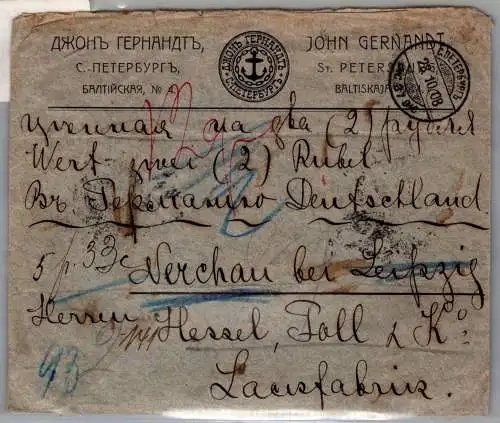 ДЖОНЪ ГЕРНАНДТЪ,
С.-ПЕТЕРБУРГЪ,
БАЛТІЙСКАЯ, №
ДЖОНЪ ГЕРНАНДТЪ
С. ПЕТЕРБУРГЪ
JOHN GERNANDT
ST PETERS
BALTISKAJA
10.08
цѣнная на два (2) рубля
Wert zwei (2) Rubel
Въ Германію Deutschland
Nerchau bei Leipzig
Herren Hessel, Toll & Ko
Lackfabrik.
93